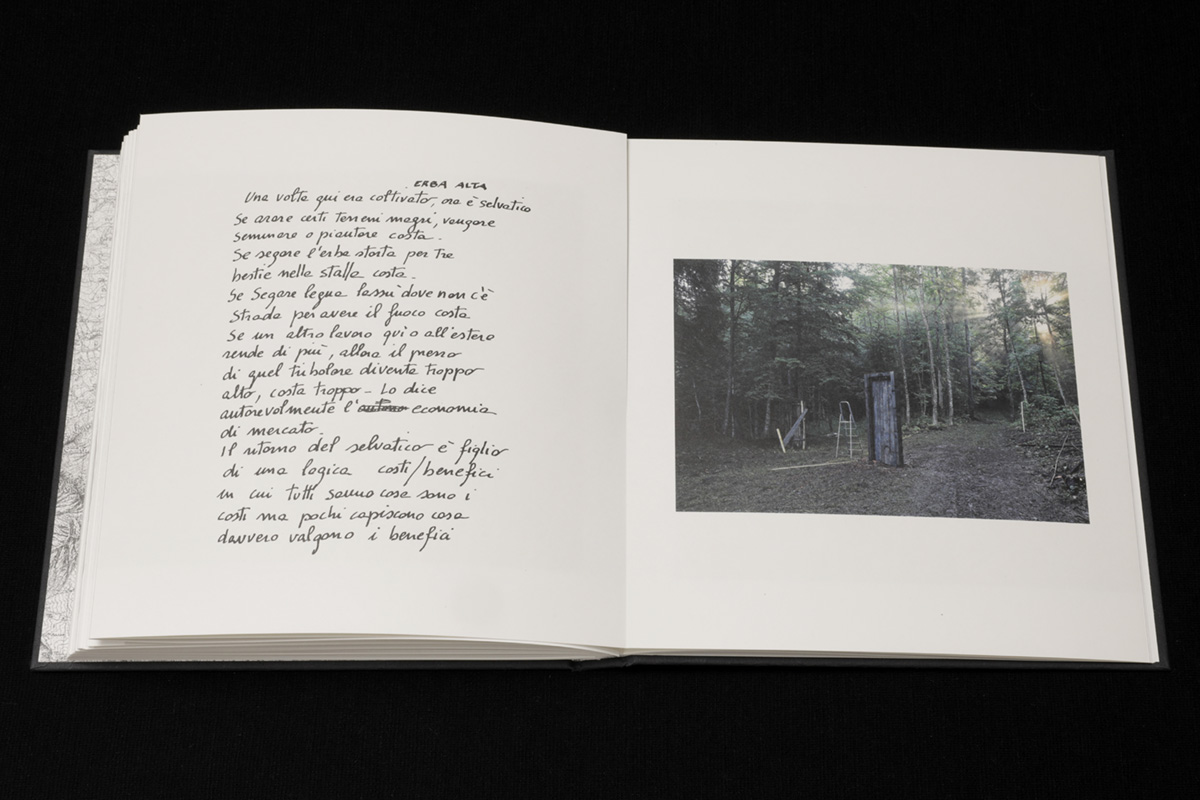 ERBA ALTA
Una volta qui era coltivato, ora è selvatico
Se arare certi terreni magri, vangare
seminare o piantare costa.
Se segare l'erba storta per tre
bestie nella stalla costa.
Se Segare legna lassù dove non c'è
strada per avere il fuoco costa
Se un altro lavoro qui o all'estero
rende di più, allora il prezzo
di quel tribolare diventa troppo
alto, costa troppo - Lo dice
autorevolmente l' economia
di mercato.
Il ritorno del selvatico è figlio
di una logica costi/benefici
in cui tutti sanno cosa sono i
costi ma pochi capiscono cosa
davvero valgono i benefici